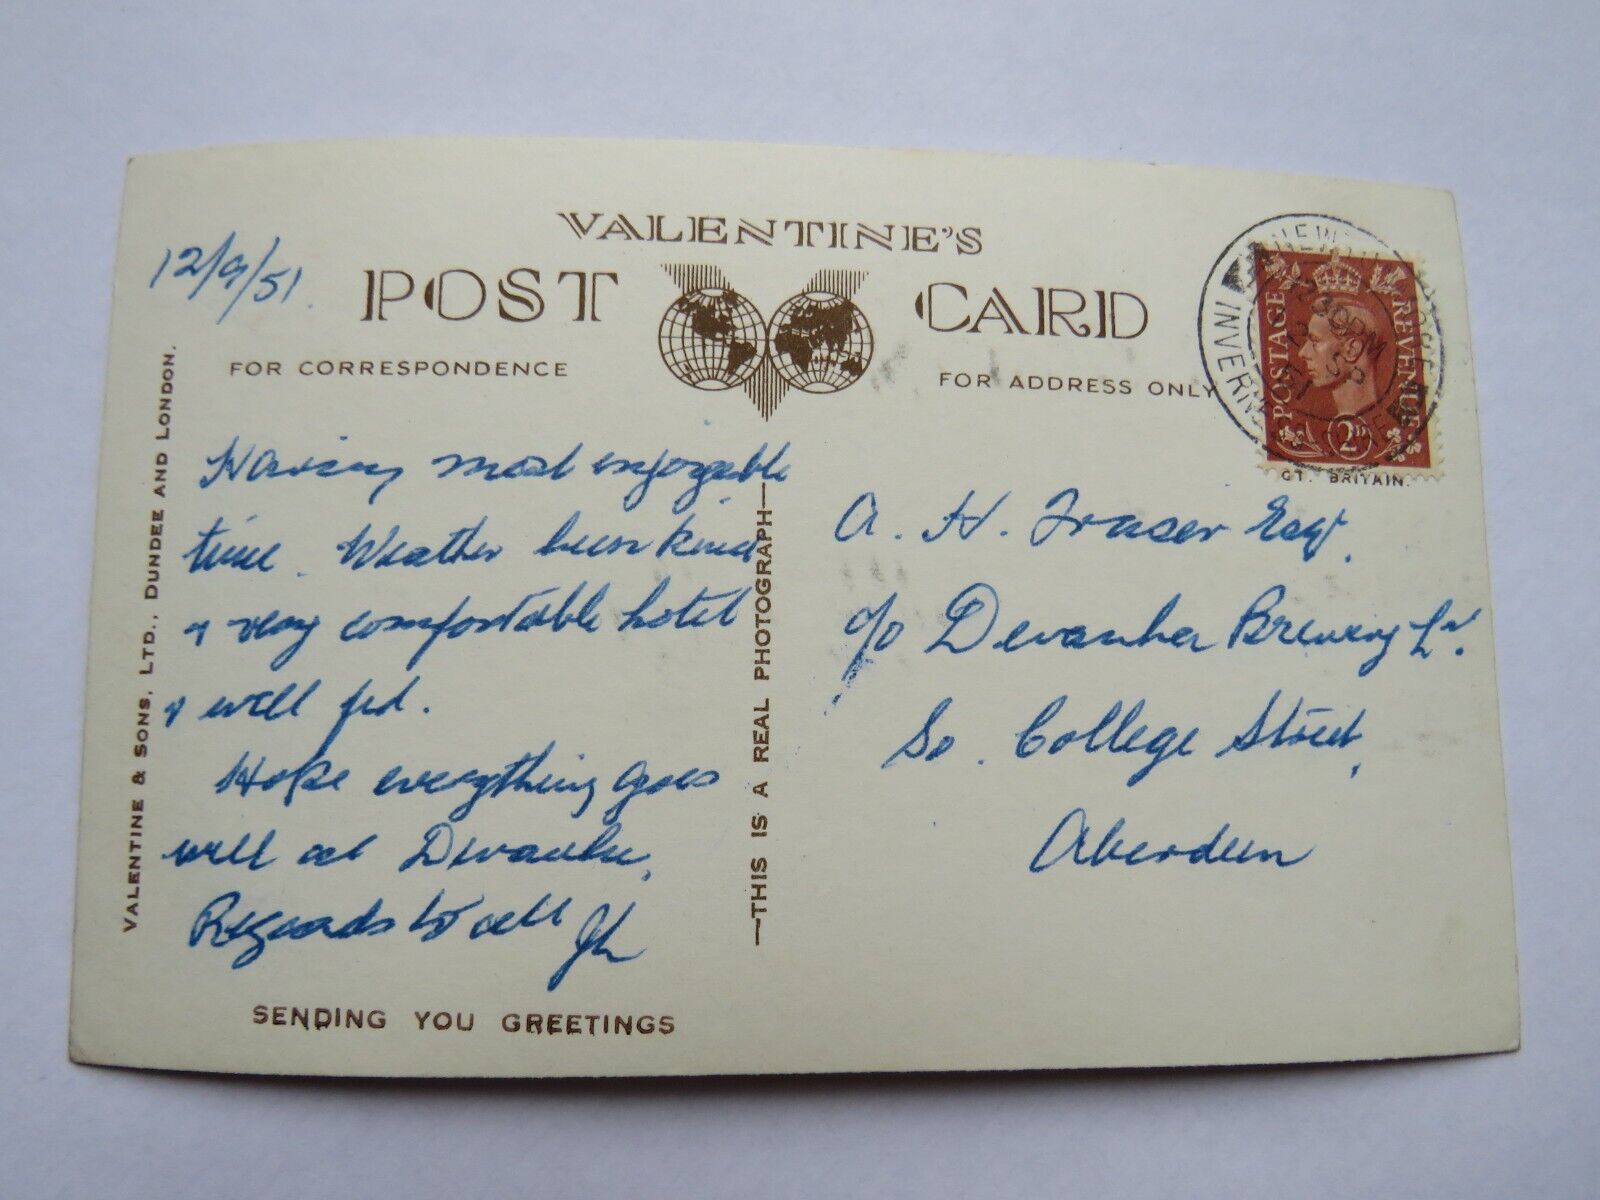 VALENTINE'S
POST CARD
FOR CORRESPONDENCE
FOR ADDRESS ONLY
12/9/51
Having most enjoyable
time. Weather been kind
& very comfortable hotel
& well fed.
Hope everything goes
well at Devanha.
Regards to all
SENDING YOU GREETINGS
VALENTINE & SONS, LTD., DUNDEE AND LONDON.
—THIS IS A REAL PHOTOGRAPH—
POSTAGE REVENUE
2D
INVERNESS
30PM
12 SP
51
GT. BRITAIN.
A. H. Fraser Esq.
c/o Devanha Brewery
So. College Street,
Aberdeen